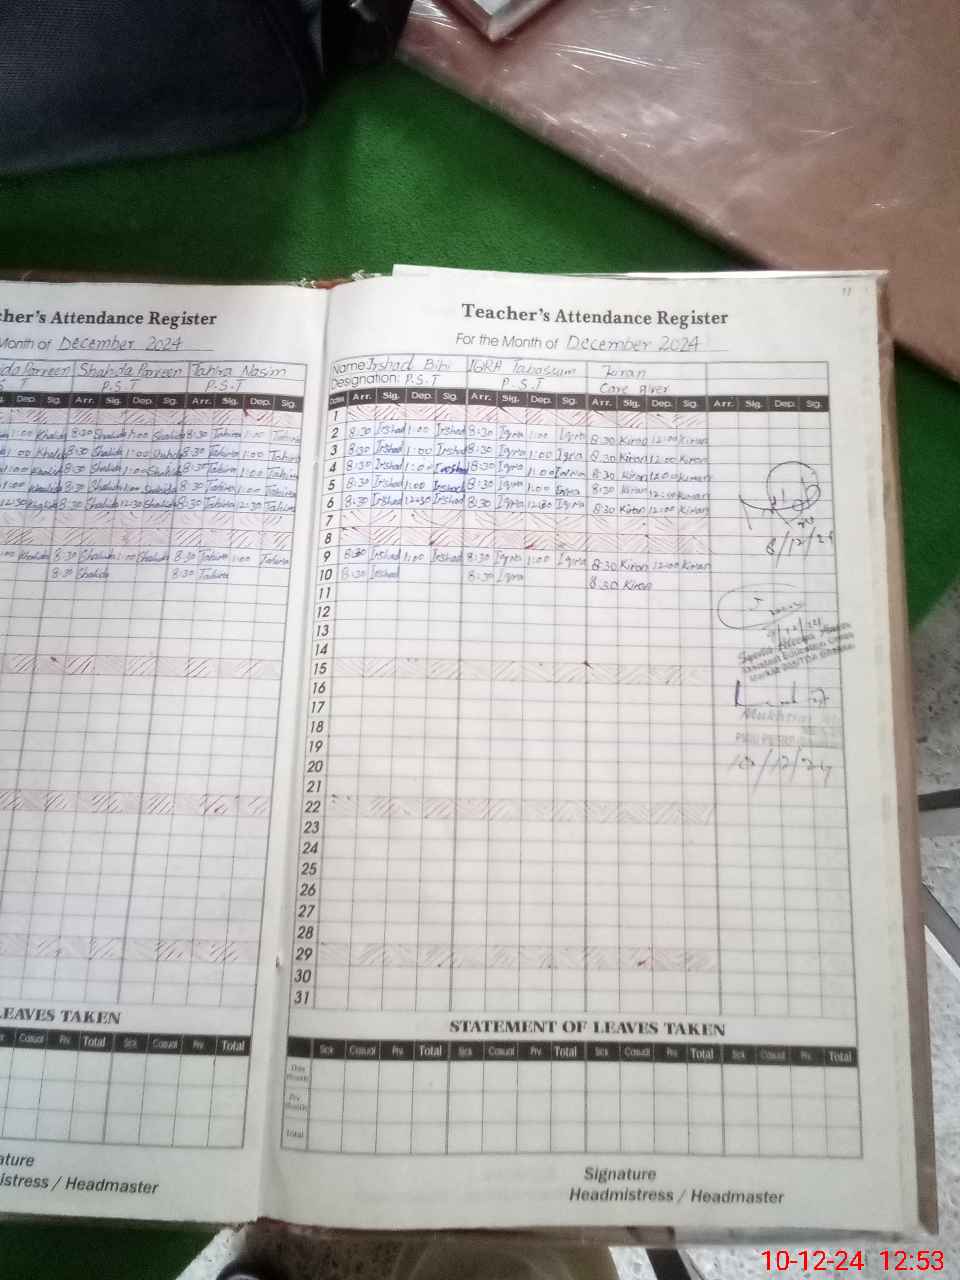 cher's Attendance Register
Month of December 2024
Shahida Parveen Tahira Nasim
S.T P.S.T P.S.T
Dep. Sig. Arr. Sig. Dep. Sig. Arr. Sig. Dep. Sig.
1:00 Khalida 8:30 Shahida 1:00 Shahida 8:30 Tahira 1:00 Tahira
1:00 Khalida 8:30 Shahida 1:00 Shahida 8:30 Tahira 1:00 Tahira
1:00 Khalida 8:30 Shahida 1:00 Shahida 8:30 Tahira 1:00 Tahira
1:00 Khalida 8:30 Shahida 1:00 Shahida 8:30 Tahira 1:00 Tahira
12:30 Khalida 8:30 Shahida 12:30 Shahida 8:30 Tahira 12:30 Tahira
1:00 Khalida 8:30 Shahida 1:00 Shahida 8:30 Tahira 1:00 Tahira
8:30 Shahida 8:30 Tahira
LEAVES TAKEN
Casual Prv. Total Sick Casual Prv. Total Sick Casual Prv. Total
ature
istress / Headmaster
Teacher's Attendance Register
For the Month of December 2024
Name Irshad Bibi IQRA Tabassum Kiran
Designation: P.S.T P.S.T Care giver
Dates Arr. Sig. Dep. Sig. Arr. Sig. Dep. Sig. Arr. Sig. Dep. Sig. Arr. Sig. Dep. Sig.
1
2 8:30 Irshad 1:00 Irshad 8:30 Iqra 1:00 Iqra 8:30 Kiran 12:00 Kiran
3 8:30 Irshad 1:00 Irshad 8:30 Iqra 1:00 Iqra 8:30 Kiran 12:00 Kiran
4 8:30 Irshad 1:00 Irshad 8:30 Iqra 1:00 Iqra 8:30 Kiran 12:00 Kiran
5 8:30 Irshad 1:00 Irshad 8:30 Iqra 1:00 Iqra 8:30 Kiran 12:00 Kiran
6 8:30 Irshad 12:30 Irshad 8:30 Iqra 12:30 Iqra 8:30 Kiran 12:00 Kiran
7
8
9 8:30 Irshad 1:00 Irshad 8:30 Iqra 1:00 Iqra 8:30 Kiran 12:00 Kiran
10 8:30 Irshad 8:30 Iqra 8:30 Kiran
11
12
13
14
15
16
17
18
19
20
21
22
23
24
25
26
27
28
29
30
31
8/12/24
Assistant Education
10/12/24
STATEMENT OF LEAVES TAKEN
Sick Casual Prv. Total Sick Casual Prv. Total Sick Casual Prv. Total Sick Casual Prv. Total
Total
Signature
Headmistress / Headmaster
10-12-24 12:53